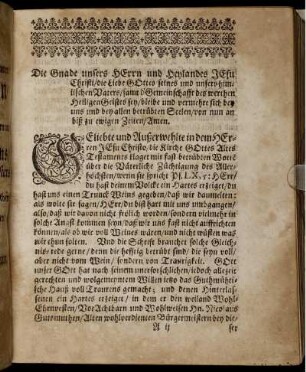 Die Gnade unsers HErrn und Heylandes JEsu
Christi, die Liebe GOttes seines und unsers himm-
lischen Vaters, samt der Gemeinschafft des werthen
Heiligen Geistes sey, bleibe und vermehre sich bey
uns und bey allen betrübten Seelen, von nun an
biß zu ewigen Zeiten, Amen.
GEliebte und Außerwehlte in dem HEr-
ren JEsu Christo, die Kirche GOttes Altes
Testaments klaget mit fast betrübten Worten
über die Väterliche Züchtigung des Aller-
höchsten, wenn sie spricht Ps. LX, 5: HErr/
du hast deinem Volcke ein Hartes erzeiget, du
hast uns einen Trunck Weins gegeben, daß wir daumelten;
als wolte sie sagen/ HErr/ du bist hart mit uns umbgangen/
also, daß wir davon nicht frölich worden/ sondern vielmehr in
solche Angst kommen seyn, daß wir uns fast nicht auffrichten
können/ als ob wir voll Weines wären/ und nicht wüsten was
wir thun solten. Und die Schrifft brauchet solche Gleich-
niß-rede gerne/ denn die hefftig betrübt sind/ die seyn voll
aber nicht vom Wein/ sondern von Traurigkeit. GOtt
unser GOtt hat nach seinem unerforschlichen/ iedoch allezeit
gerechten und wolgemeyntem Willen ietzo das Gutthmuthi-
sche Hauß voll Traurens gemacht; und denen Hinterlas-
senen ein Hartes erzeiget/ in dem er den weiland Wohl-
Ehrenvesten/ Vor-Achtbarn und Wohlweisen Hn.
Gutsmuthen/ Alten wohlverdienten Bürgermeistern bey die-
A ij
ser